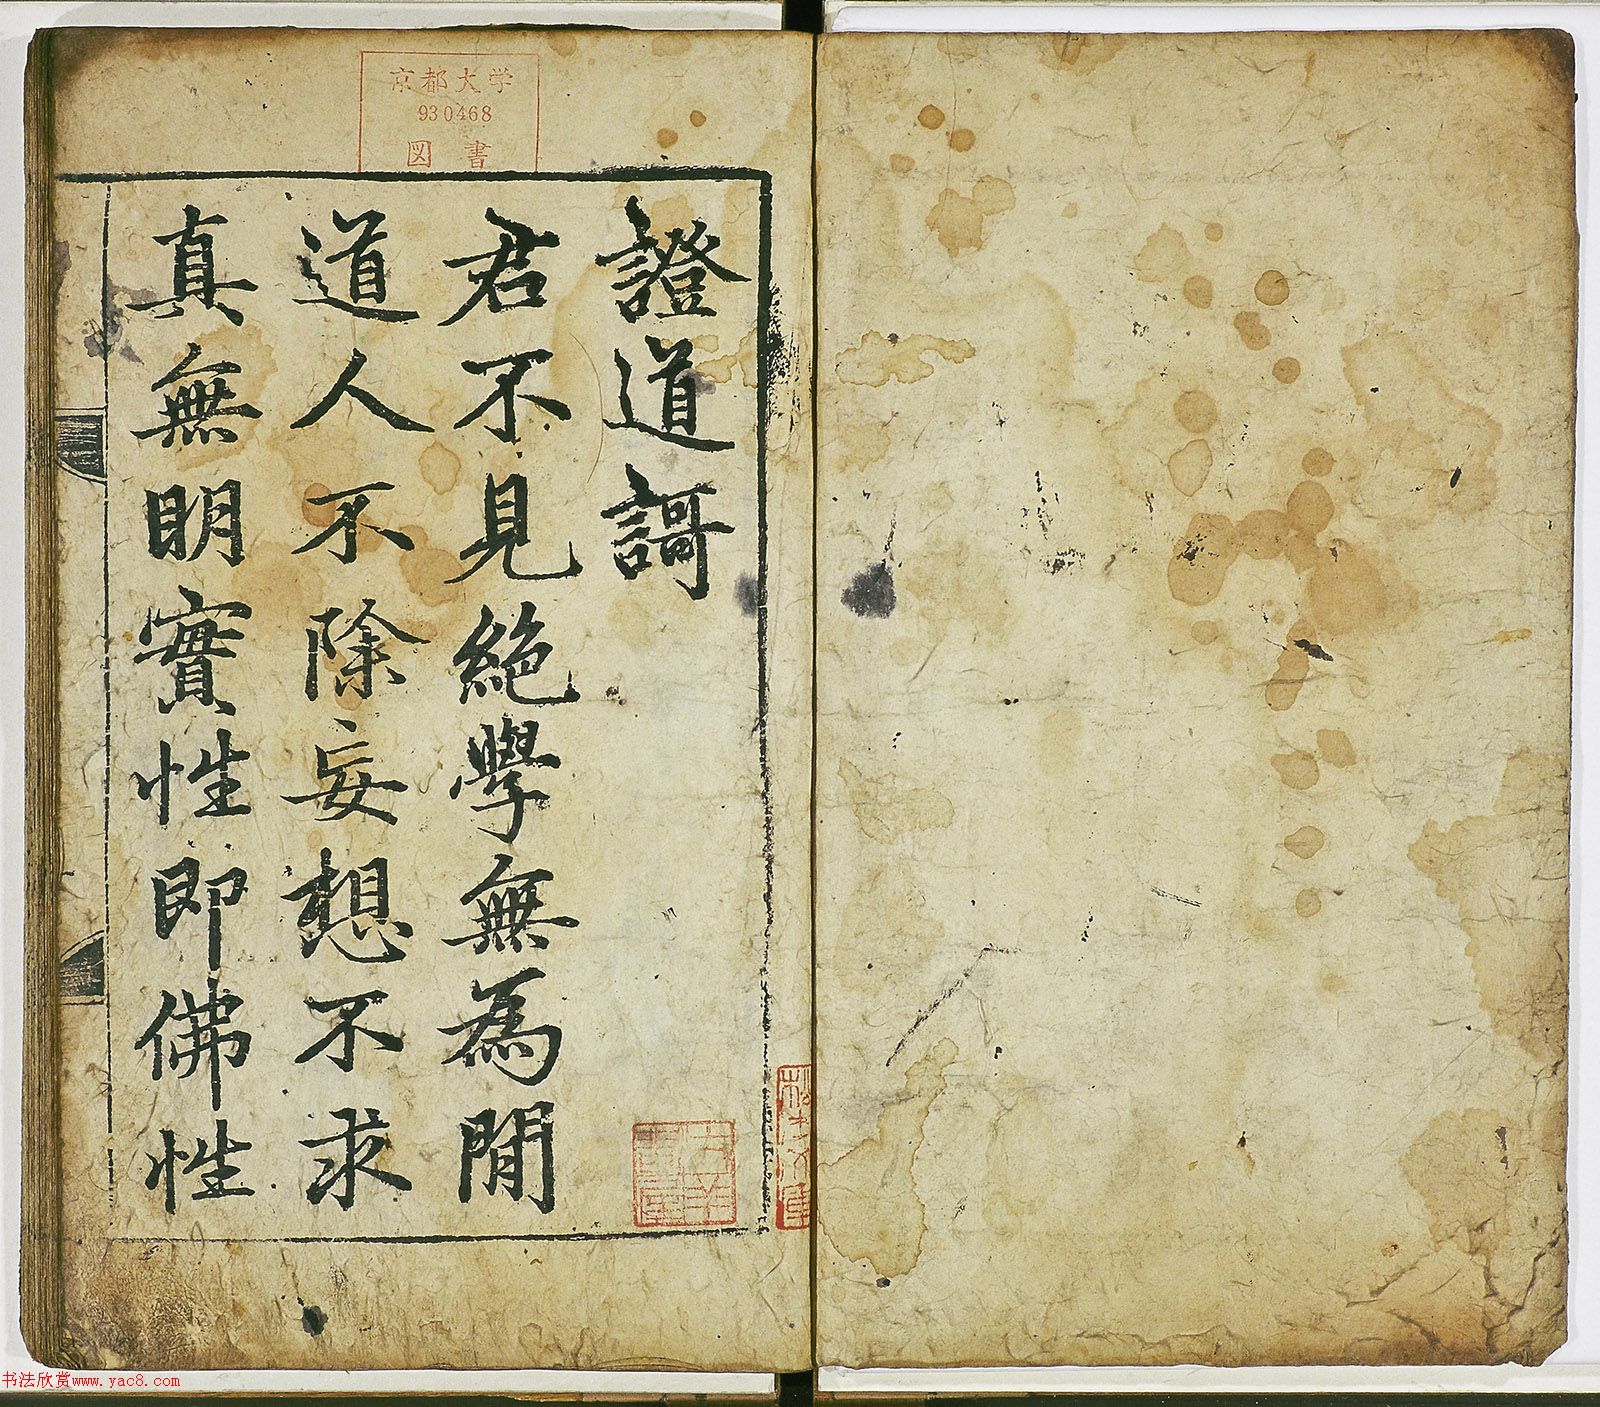 京都大学
930468
図書
證道謌
君不見絶學無為閒
道人不除妄想不求
真無明實性即佛性
书法欣赏www.yac8.com